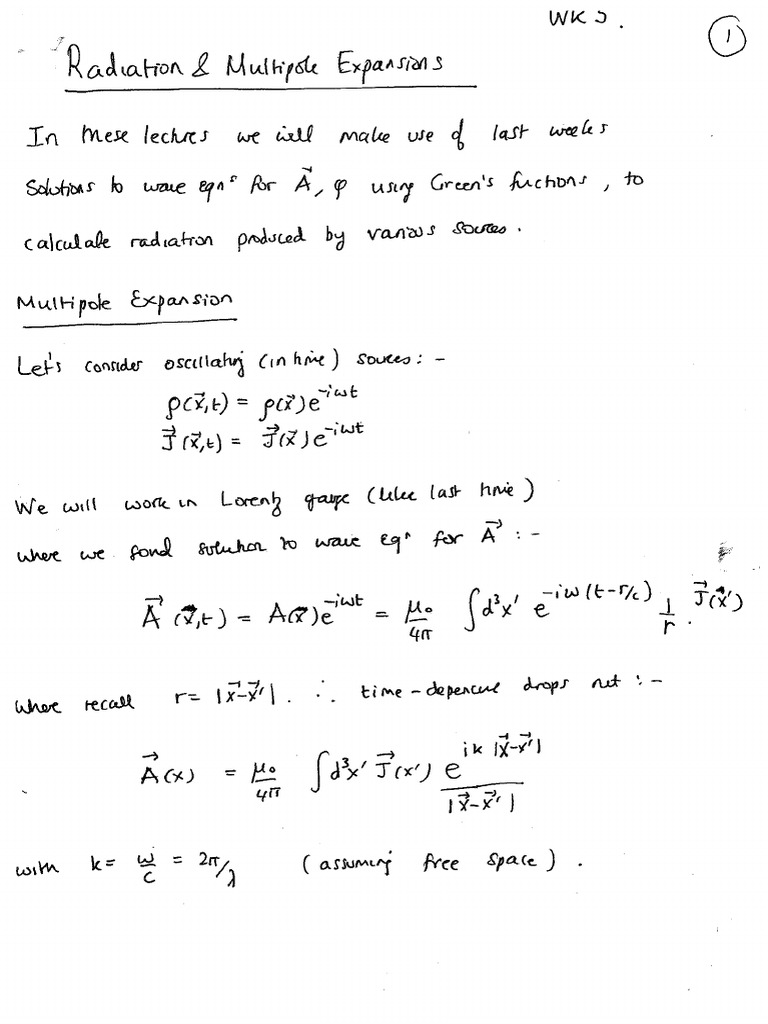 WK 5.
1
Radiation & Multipole Expansions
In these lectures we will make use of last weeks
solutions to wave eqns for A⃗, φ using Green's functions, to
calculate radiation produced by various sources.
Multipole Expansion
Let's consider oscillating (in time) sources: -
ρ(x⃗,t) = ρ(x⃗)e^{-iωt}
J⃗(x⃗,t) = J⃗(x⃗)e^{-iωt}
We will work in Lorentz gauge (like last time)
where we found solution to wave eqn for A⃗ : -
A⃗(x⃗,t) = A(x⃗)e^{-iωt} = μ₀/4π ∫d³x' e^{-iω(t-r/c)} 1/r . J⃗(x⃗')
where recall r = |x⃗-x⃗'|. ∴ time-dependence drops out : -
A⃗(x) = μ₀/4π ∫d³x' J⃗(x') e^{ik|x⃗-x⃗'|}/|x⃗-x⃗'|
with k = ω/c = 2π/λ (assuming free space).